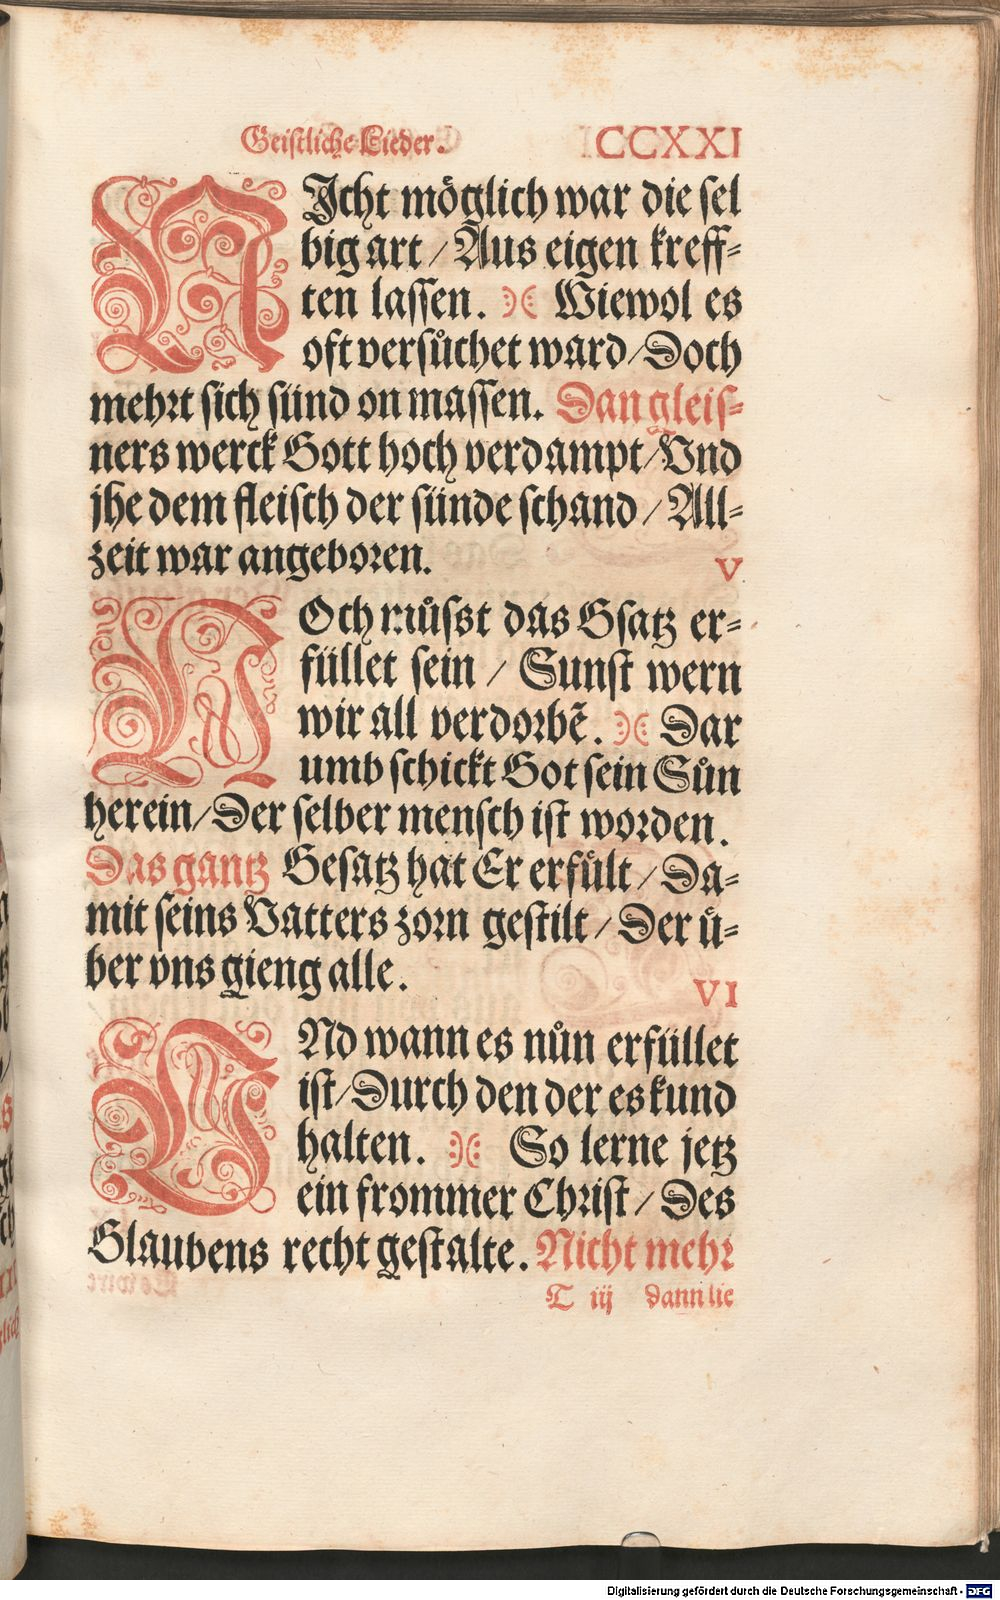 Geistliche Lieder. CCXXI
NIcht möglich war die sel
big art / Aus eigen kreff⸗
ten lassen. Wiewol es
oft versůchet ward / Doch
mehrt sich sünd on massen. Dan gleis⸗
ners werck Gott hoch verdampt / Vnd
jhe dem fleisch der sünde schand / All⸗
zeit war angeboren.
V
NOch můsst das Gsatz er⸗
füllet sein / Sunst wern
wir all verdorbẽ. Dar
umb schickt Got sein Sůn
herein / Der selber mensch ist worden.
Das gantz Gesatz hat Er erfült / Da⸗
mit seins Vatters zorn gestilt / Der ü⸗
ber vns gieng alle.
VI
VNd wann es nůn erfüllet
ist / Durch den der es kund
halten. So lerne jetz
ein frommer Christ / Des
Glaubens recht gestalte. Nicht mehr
T iij dann lie
Digitalisierung gefördert durch die Deutsche Forschungsgemeinschaft - DFG